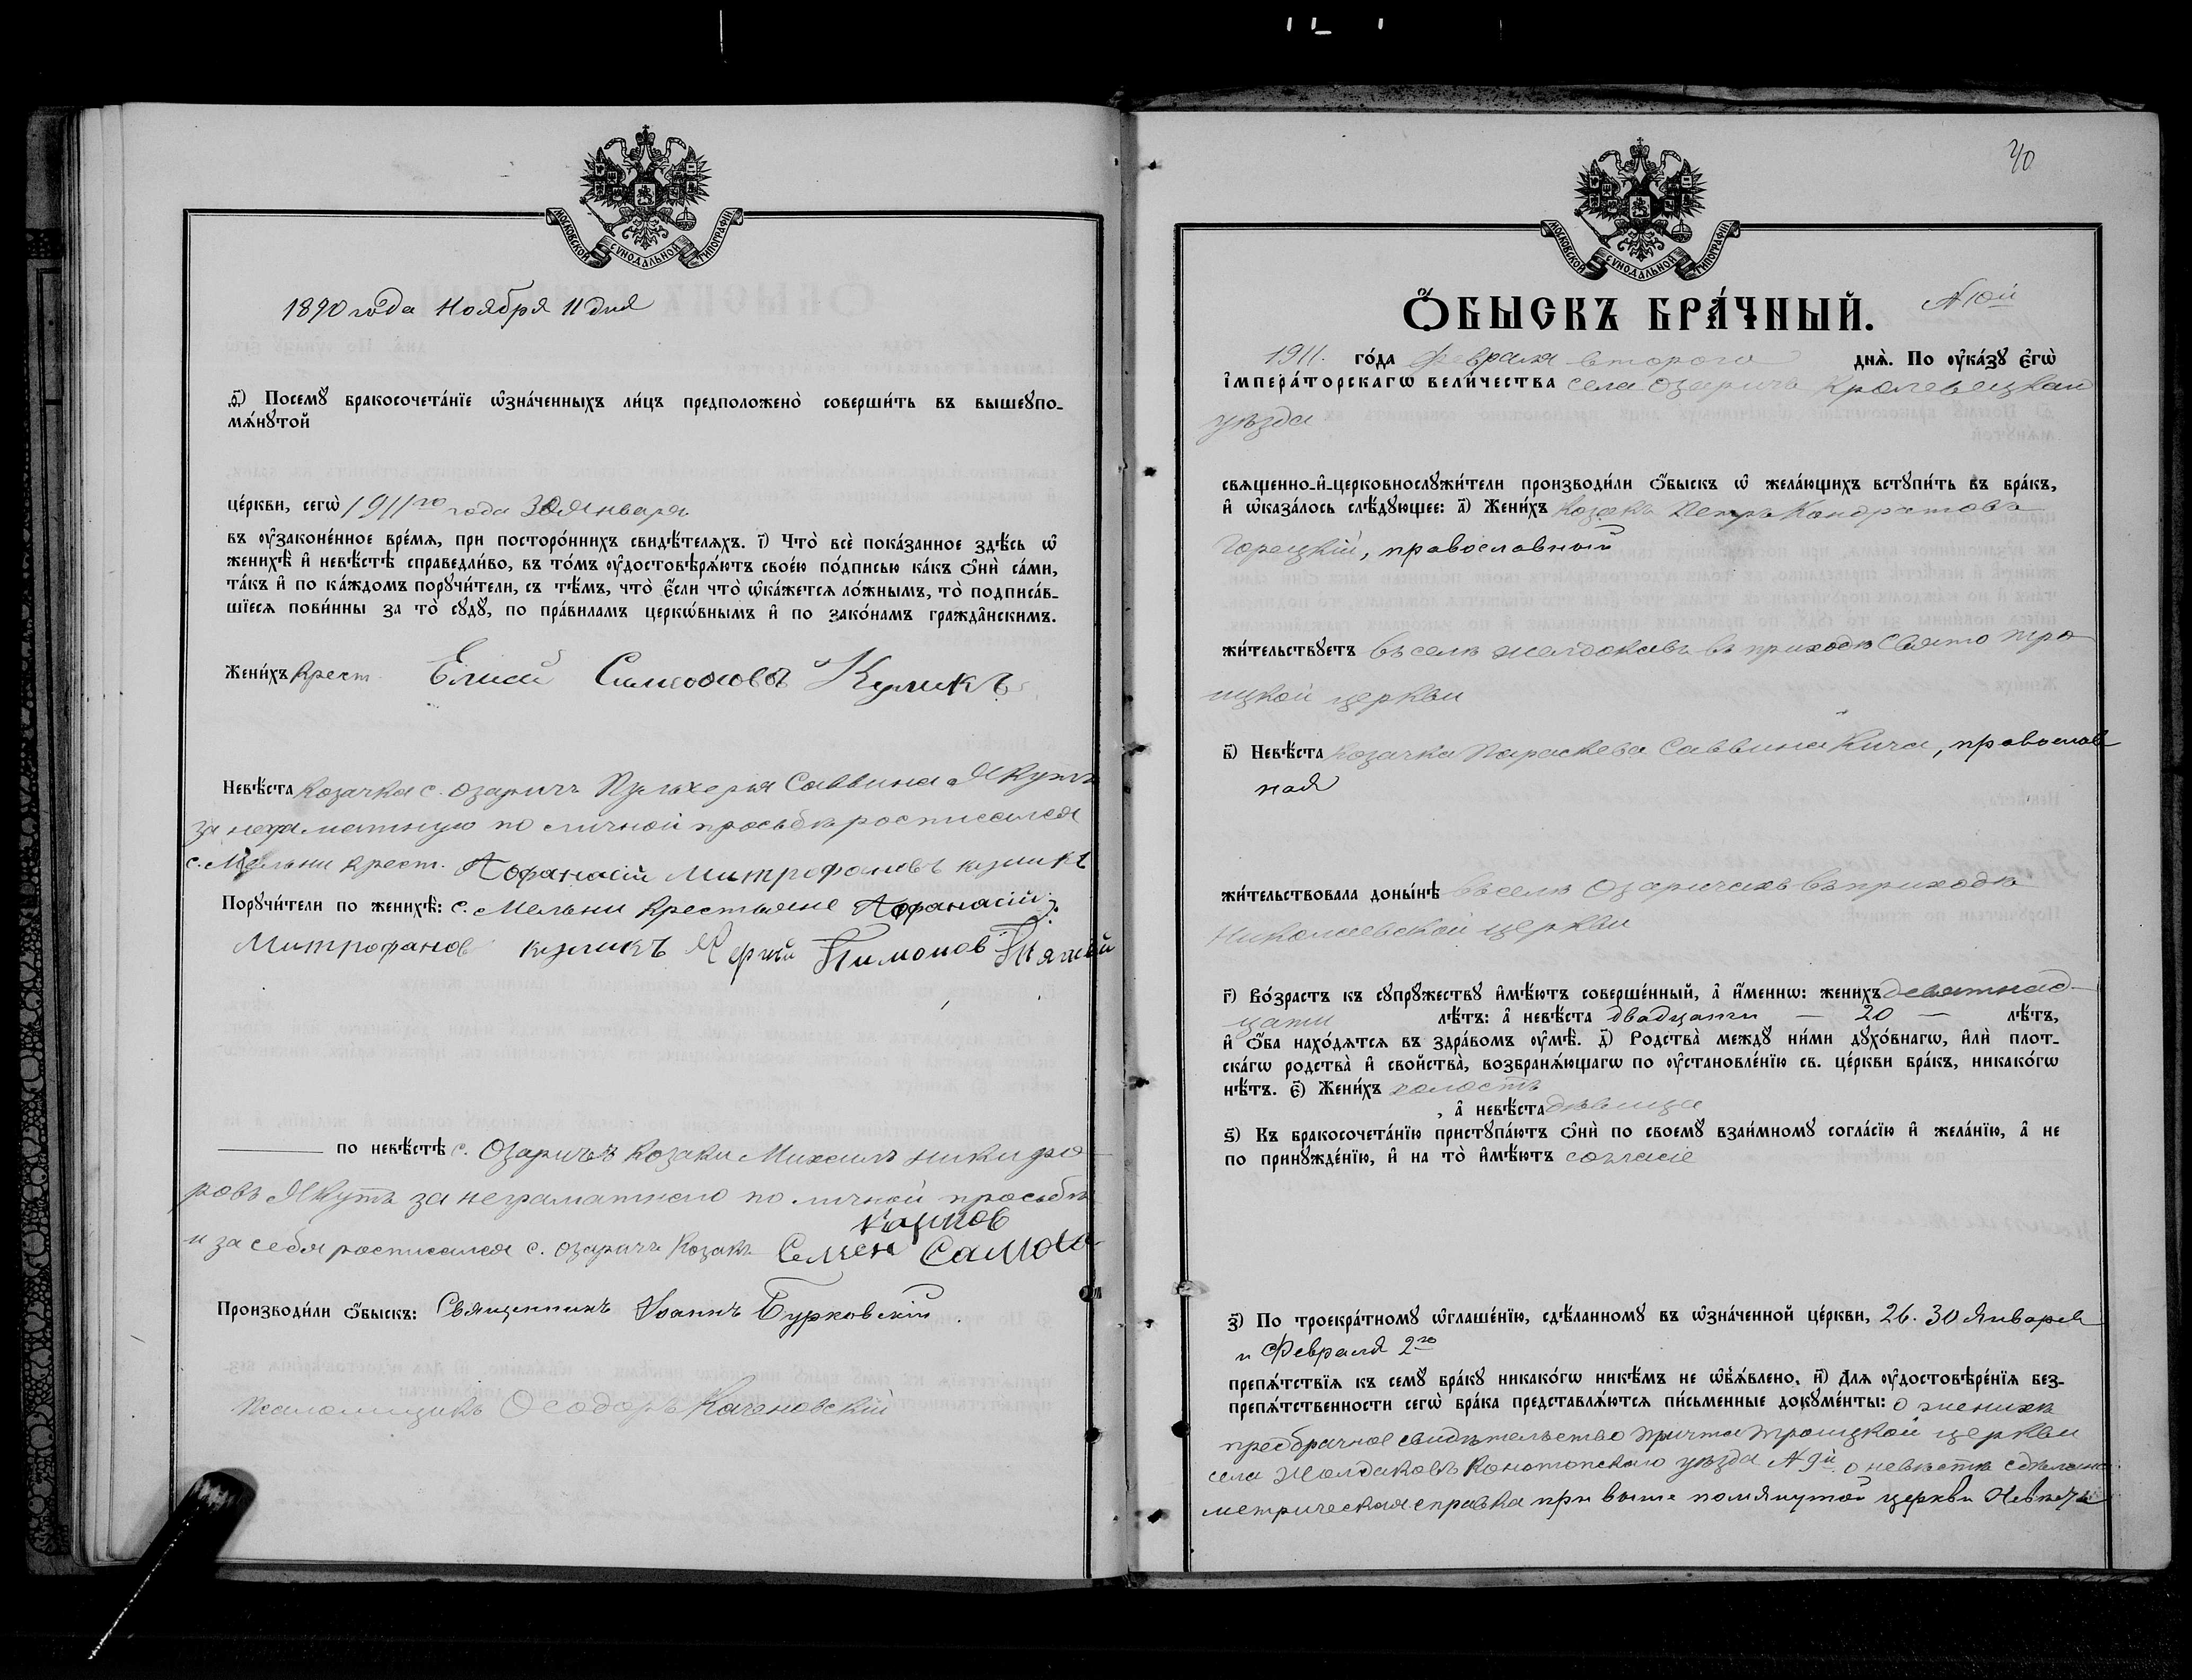 МОСКОВСКОЙ СѴНОДАЛЬНОЙ ТИПОГРАФІИ
1890 года Ноября 11 дня
ѳ҃) Посемꙋ̀ бракосочета́нїе ѡ҆зна́ченныхъ ли́цъ предположено̀ соверши́ть въ вышеꙋпо-
мѧ́нꙋтой
це́ркви, сегѡ̀ 1911го года 30 Января
въ ᲂу҆зако́ненное вре́мѧ, при посторо́ннихъ свидѣ́телѧхъ. і҃) Что̀ всѐ пока́занное здѣ́сь ѡ҆
женихѣ̀ и҆ невѣ́стѣ справедли́во, въ то́мъ ᲂу҆достовѣрѧ́ютъ свое́ю по́дписью ка́къ ѻ҆нѝ са́ми,
та́къ и҆ по ка́ждомъ порꙋчи́тели, съ тѣ́мъ, что̀ є҆́сли что̀ ѡ҆ка́жетсѧ ло́жнымъ, то̀ подписа́в-
шїесѧ пови́нны за то̀ сꙋдꙋ̀, по пра́виламъ церкѡ́внымъ и҆ по зако́намъ гражда̑нскимъ.
Жени́хъ крест. Елисей Симоновъ Куликъ
Невѣ́ста Козачка с. Озаричъ Пульхерія Саввина Якутъ
за неграматную по личной просьбѣ росписался
с. Мельни крест. Афанасій Митрофановъ куликъ
Порꙋчи́тели по женихѣ̀: с. Мельни Крестьяне Афанасій
Митрофанов куликъ Тимонов
по невѣ́стѣ с. Озаричъ козаки Михаилъ Никифо
ровъ Якутъ за неграматного по личной просьбѣ
и за себя росписался с. Озаричъ Козакъ Семен
Производи́ли ѻ҆́быскъ: Священникъ Іоаннъ Бурковскій
Псаломщикъ Ѳеодоръ Качановскій
40
МОСКОВСКОЙ СѴНОДАЛЬНОЙ ТИПОГРАФІИ
Ѻ҆́БЫСКЪ БРА́ЧНЫЙ. № 10й
1911. го́да Февраля второго днѧ̀. По ᲂу҆ка́зꙋ є҆гѡ̀
і҆мпера́торскагѡ вели́чества села Озаричъ Кролевецкаго
уѣзда
свѧще́нно-и҆-церковнослꙋжи́тели производи́ли ѻ҆́быскъ ѡ҆ жела́ющихъ вступи́ть въ бра́къ,
и҆ ѡ҆каза́лось слѣ́дꙋющее: а҃) Жени́хъ Козакъ Петръ Кондратовъ
Горецкій, православный
жи́тельствꙋетъ въ селѣ Жолдакахъ въ приходѣ Свято Тро
ицкой церкви
в҃) Невѣ́ста Козачка Параскева Саввина Кича, православ
ная
жи́тельствовала доны́нѣ въ селѣ Озаричахъ въ приходѣ
Николаевской церкви
г҃) Во́зрастъ къ сꙋпрꙋ́жествꙋ и҆мѣ́ютъ соверше́нный, а҆ и҆́менно: жени́хъ девятнад-
цати лѣ́тъ: а҆ невѣ́ста двадцати — 20 — лѣ́тъ,
и҆ ѻ҆́ба нахо́дѧтсѧ въ здра́вомъ ᲂу҆мѣ̀. д҃) Родства̀ междꙋ̀ ни́ми дꙋхо́внагѡ, и҆лѝ плот-
ска́гѡ родства̀ и҆ сво́йства̀, возбранѧ́ющагѡ по ᲂу҆становле́нїю св. це́ркви бра́къ, никако́гѡ
нѣ́тъ. є҃) Жени́хъ холостъ
, а҆ невѣ́ста дѣвица
ѕ҃) Къ бракосочета́нїю пристꙋпа́ютъ ѻ҆нѝ по своемꙋ̀ взаи́мномꙋ согла́сїю и҆ жела́нїю, а҆ не
по принꙋжде́нїю, и҆ на то̀ и҆мѣ́ютъ согласіе
з҃) По троекра́тномꙋ ѡ҆глаше́нїю, сдѣ́ланномꙋ въ ѡ҆зна́ченной це́ркви, 26. 30 Января
и Февраля 2го
препѧ́тствїѧ къ семꙋ̀ бра́кꙋ никако́гѡ никѣ́мъ не ѡ҆б̾ѧ́влено, и҃) Длѧ ᲂу҆достовѣре́нїѧ без-
препѧ́тственности сегѡ̀ бра́ка представлѧ́ютсѧ пи́сьменные докꙋме́нты: о женихѣ
предбрачное свидѣтельство причта Троицкой церкви
села Жолдаковъ Конотопскаго уѣзда № 9й о невѣстѣ сдѣлана
метрическая справка при выше помянутой церкви